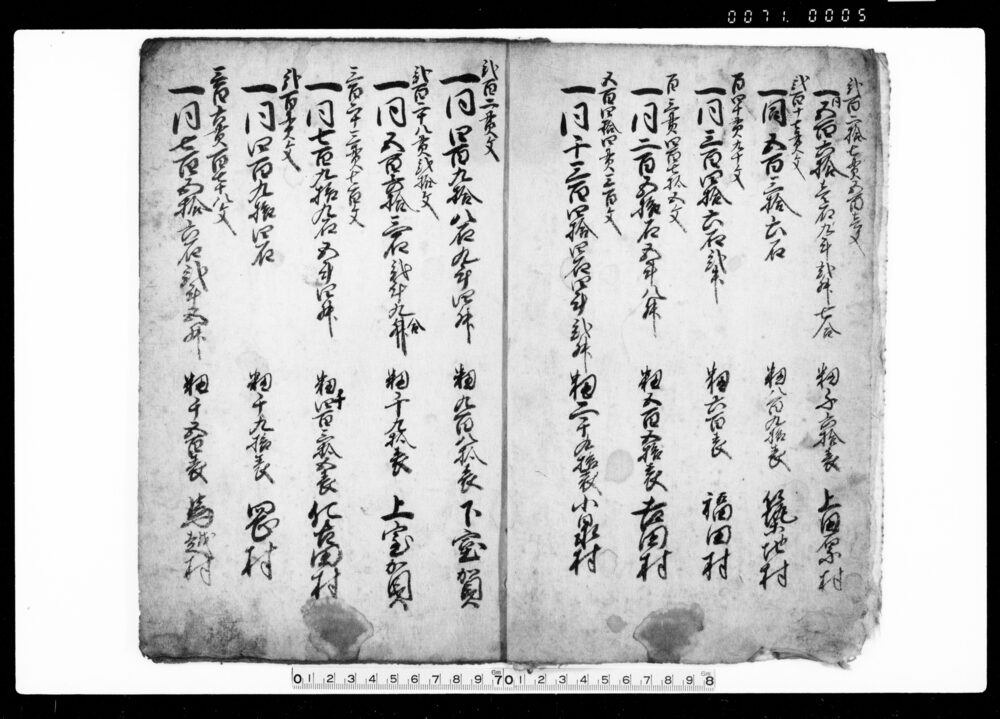 0071. 0005
弐百二拾七貫五百壱文
一同五百六拾壱石九斗弐升七合 籾千六拾表 上田原村
弐百十七貫文
一同五百三拾六石 籾八百九拾表 築地村
百四十貫九十文
一同三百四拾六石弐斗 籾六百表 福田村
百三貫四百七拾五文
一同二百五拾石五斗八升 籾五百五拾表 吉田村
五百四拾四貫三百文
一同千三百四拾四石四斗弐升 籾二千九拾表 小泉村
弐百二貫文
一同四百九拾八石九斗四升 籾九百八拾表 下室賀
弐百二十八貫弐拾文
一同五百六拾三石弐斗九升 籾千九拾表 上室賀
三百二十三貫七百文
一同七百九拾九石五斗四升 籾千四百三拾五表 仁古田村
弐百貫文
一同四百九拾四石 籾千九拾表 岡村
三百六貫百七十八文
一同七百五拾六石弐斗五升 籾千五百表 馬越村
0 1 2 3 4 5 6 7 0 1 2 3 4 5 6 8